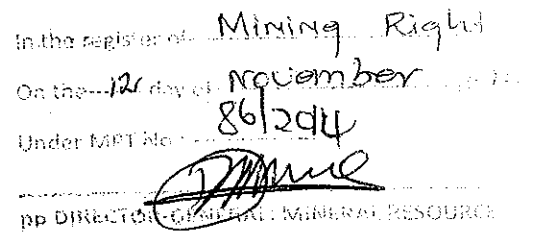 In the register of Mining Right
On the 12 day of November
Under MPT No. 86/2014
pp DIRECTOR-GENERAL: MINERAL RESOURCE